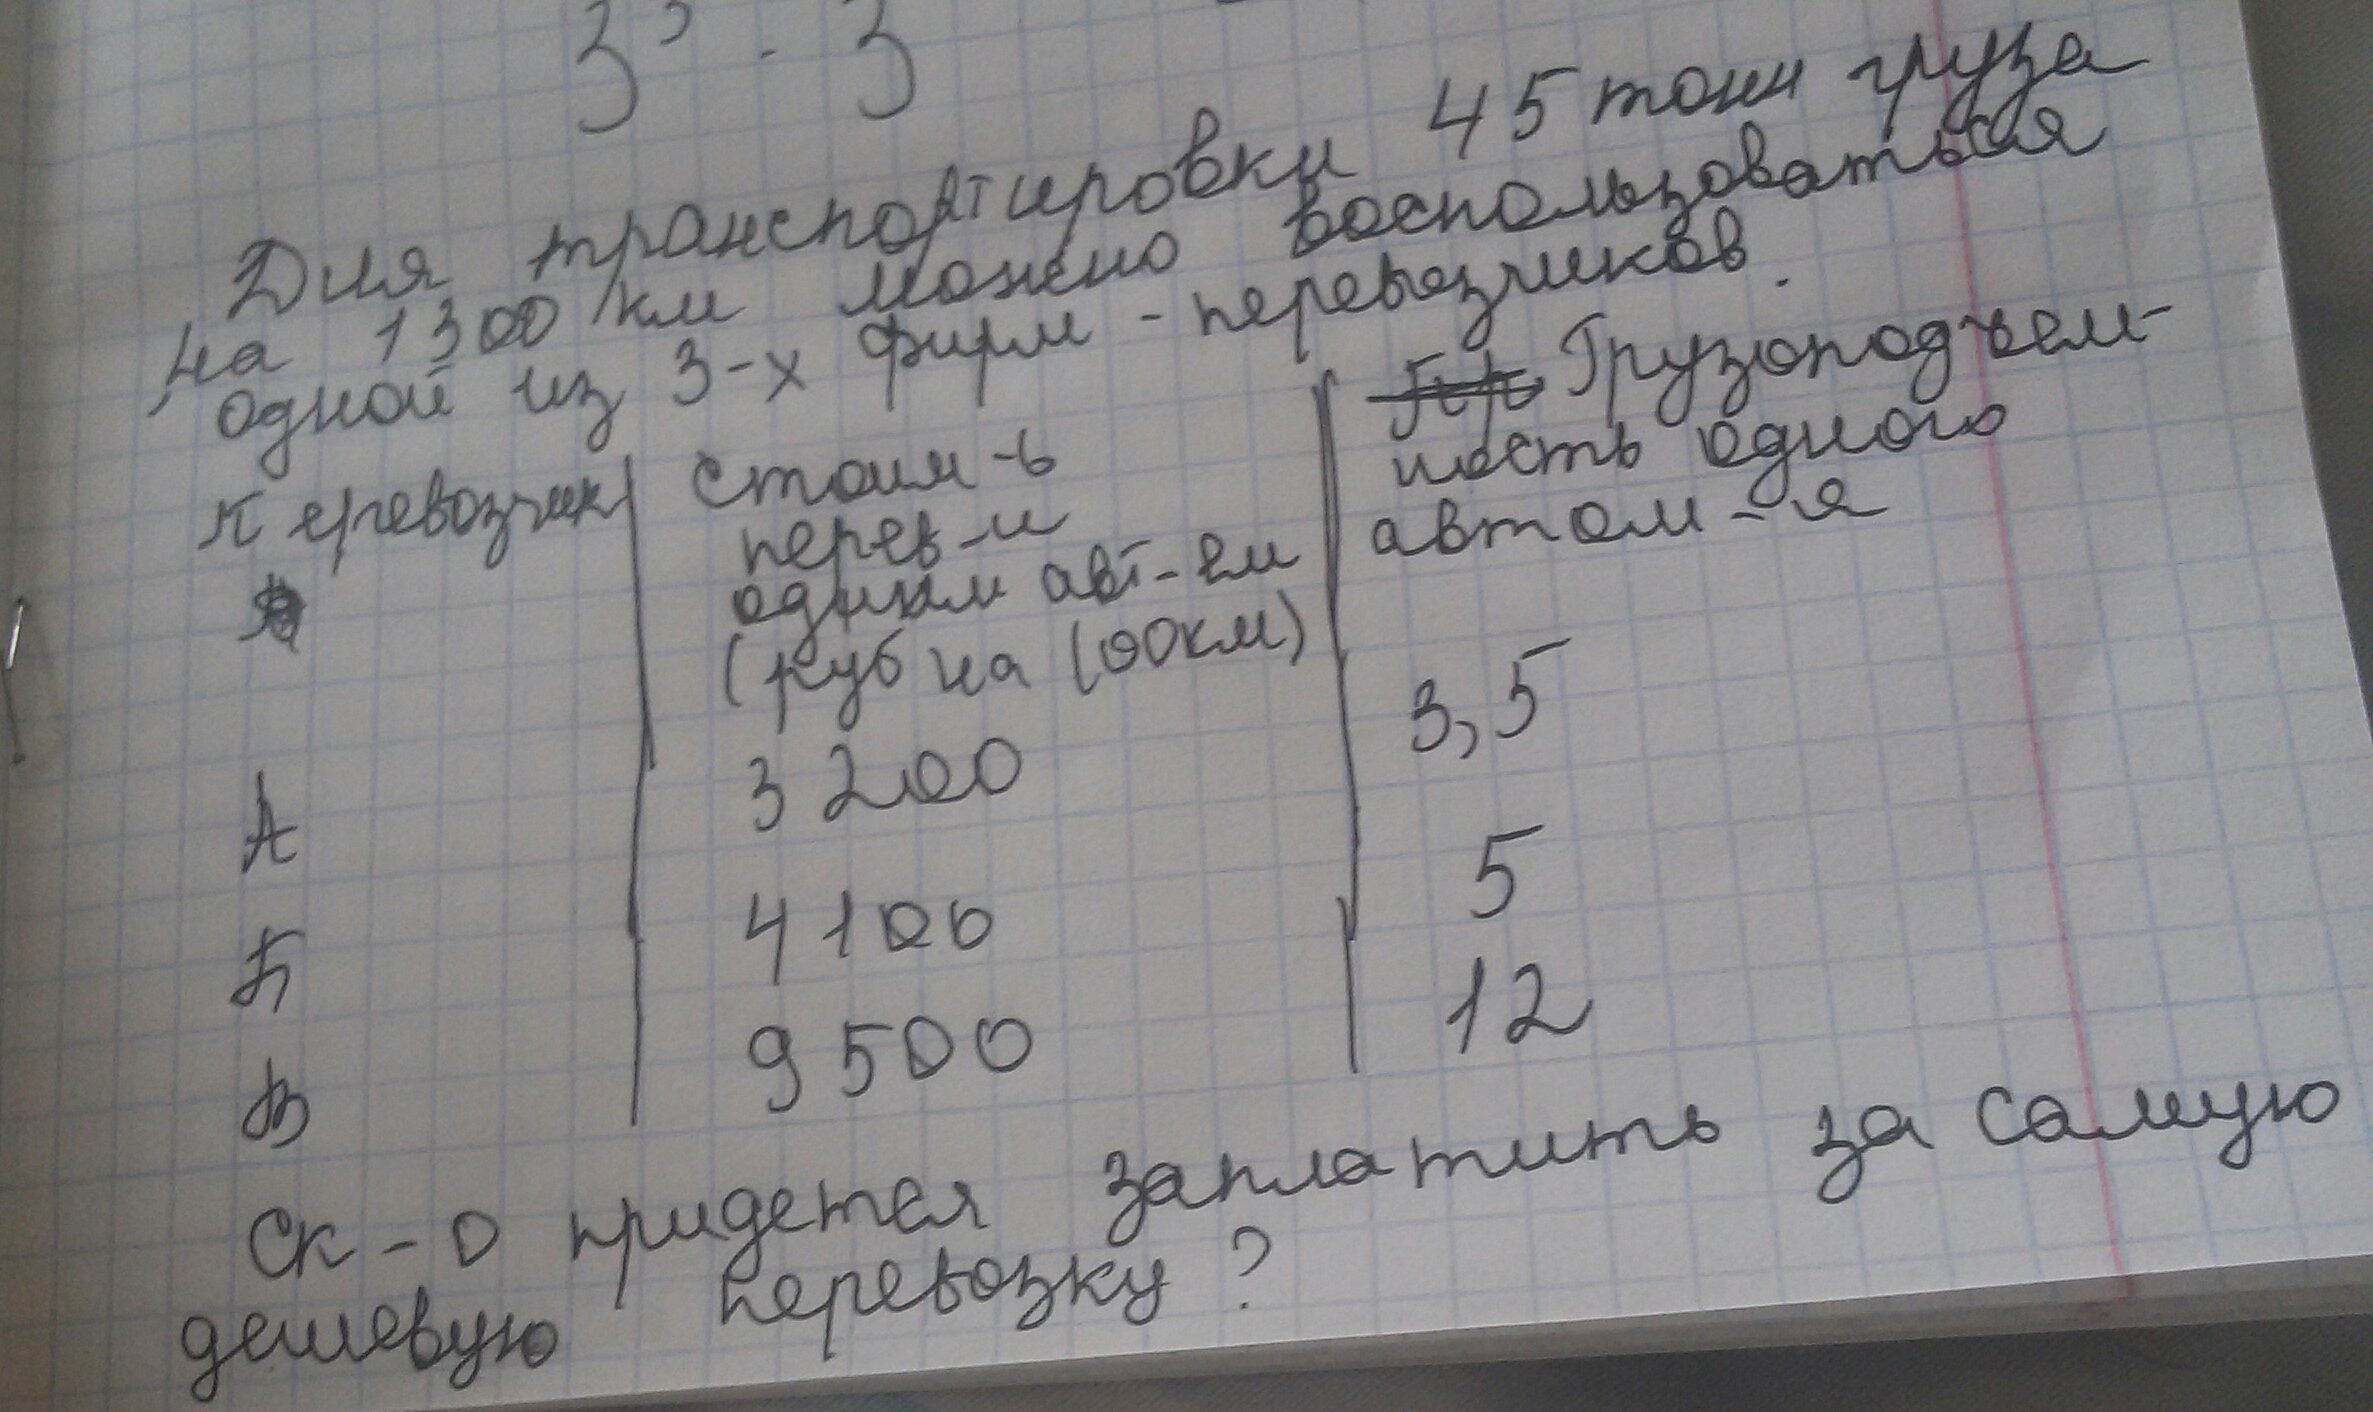 3³ · 3
Для транспортировки 45 тонн груза
на 1300 км можно воспользоваться
одной из 3-х фирм-перевозчиков.
Перевозчик стоим-ь Грузоподъем-
перев-и ность одного
одним авт-ем автом-я
(руб на 100км)
А 3200 3,5
Б 4100 5
В 9500 12
Ск-о придется заплатить за самую
дешевую перевозку?